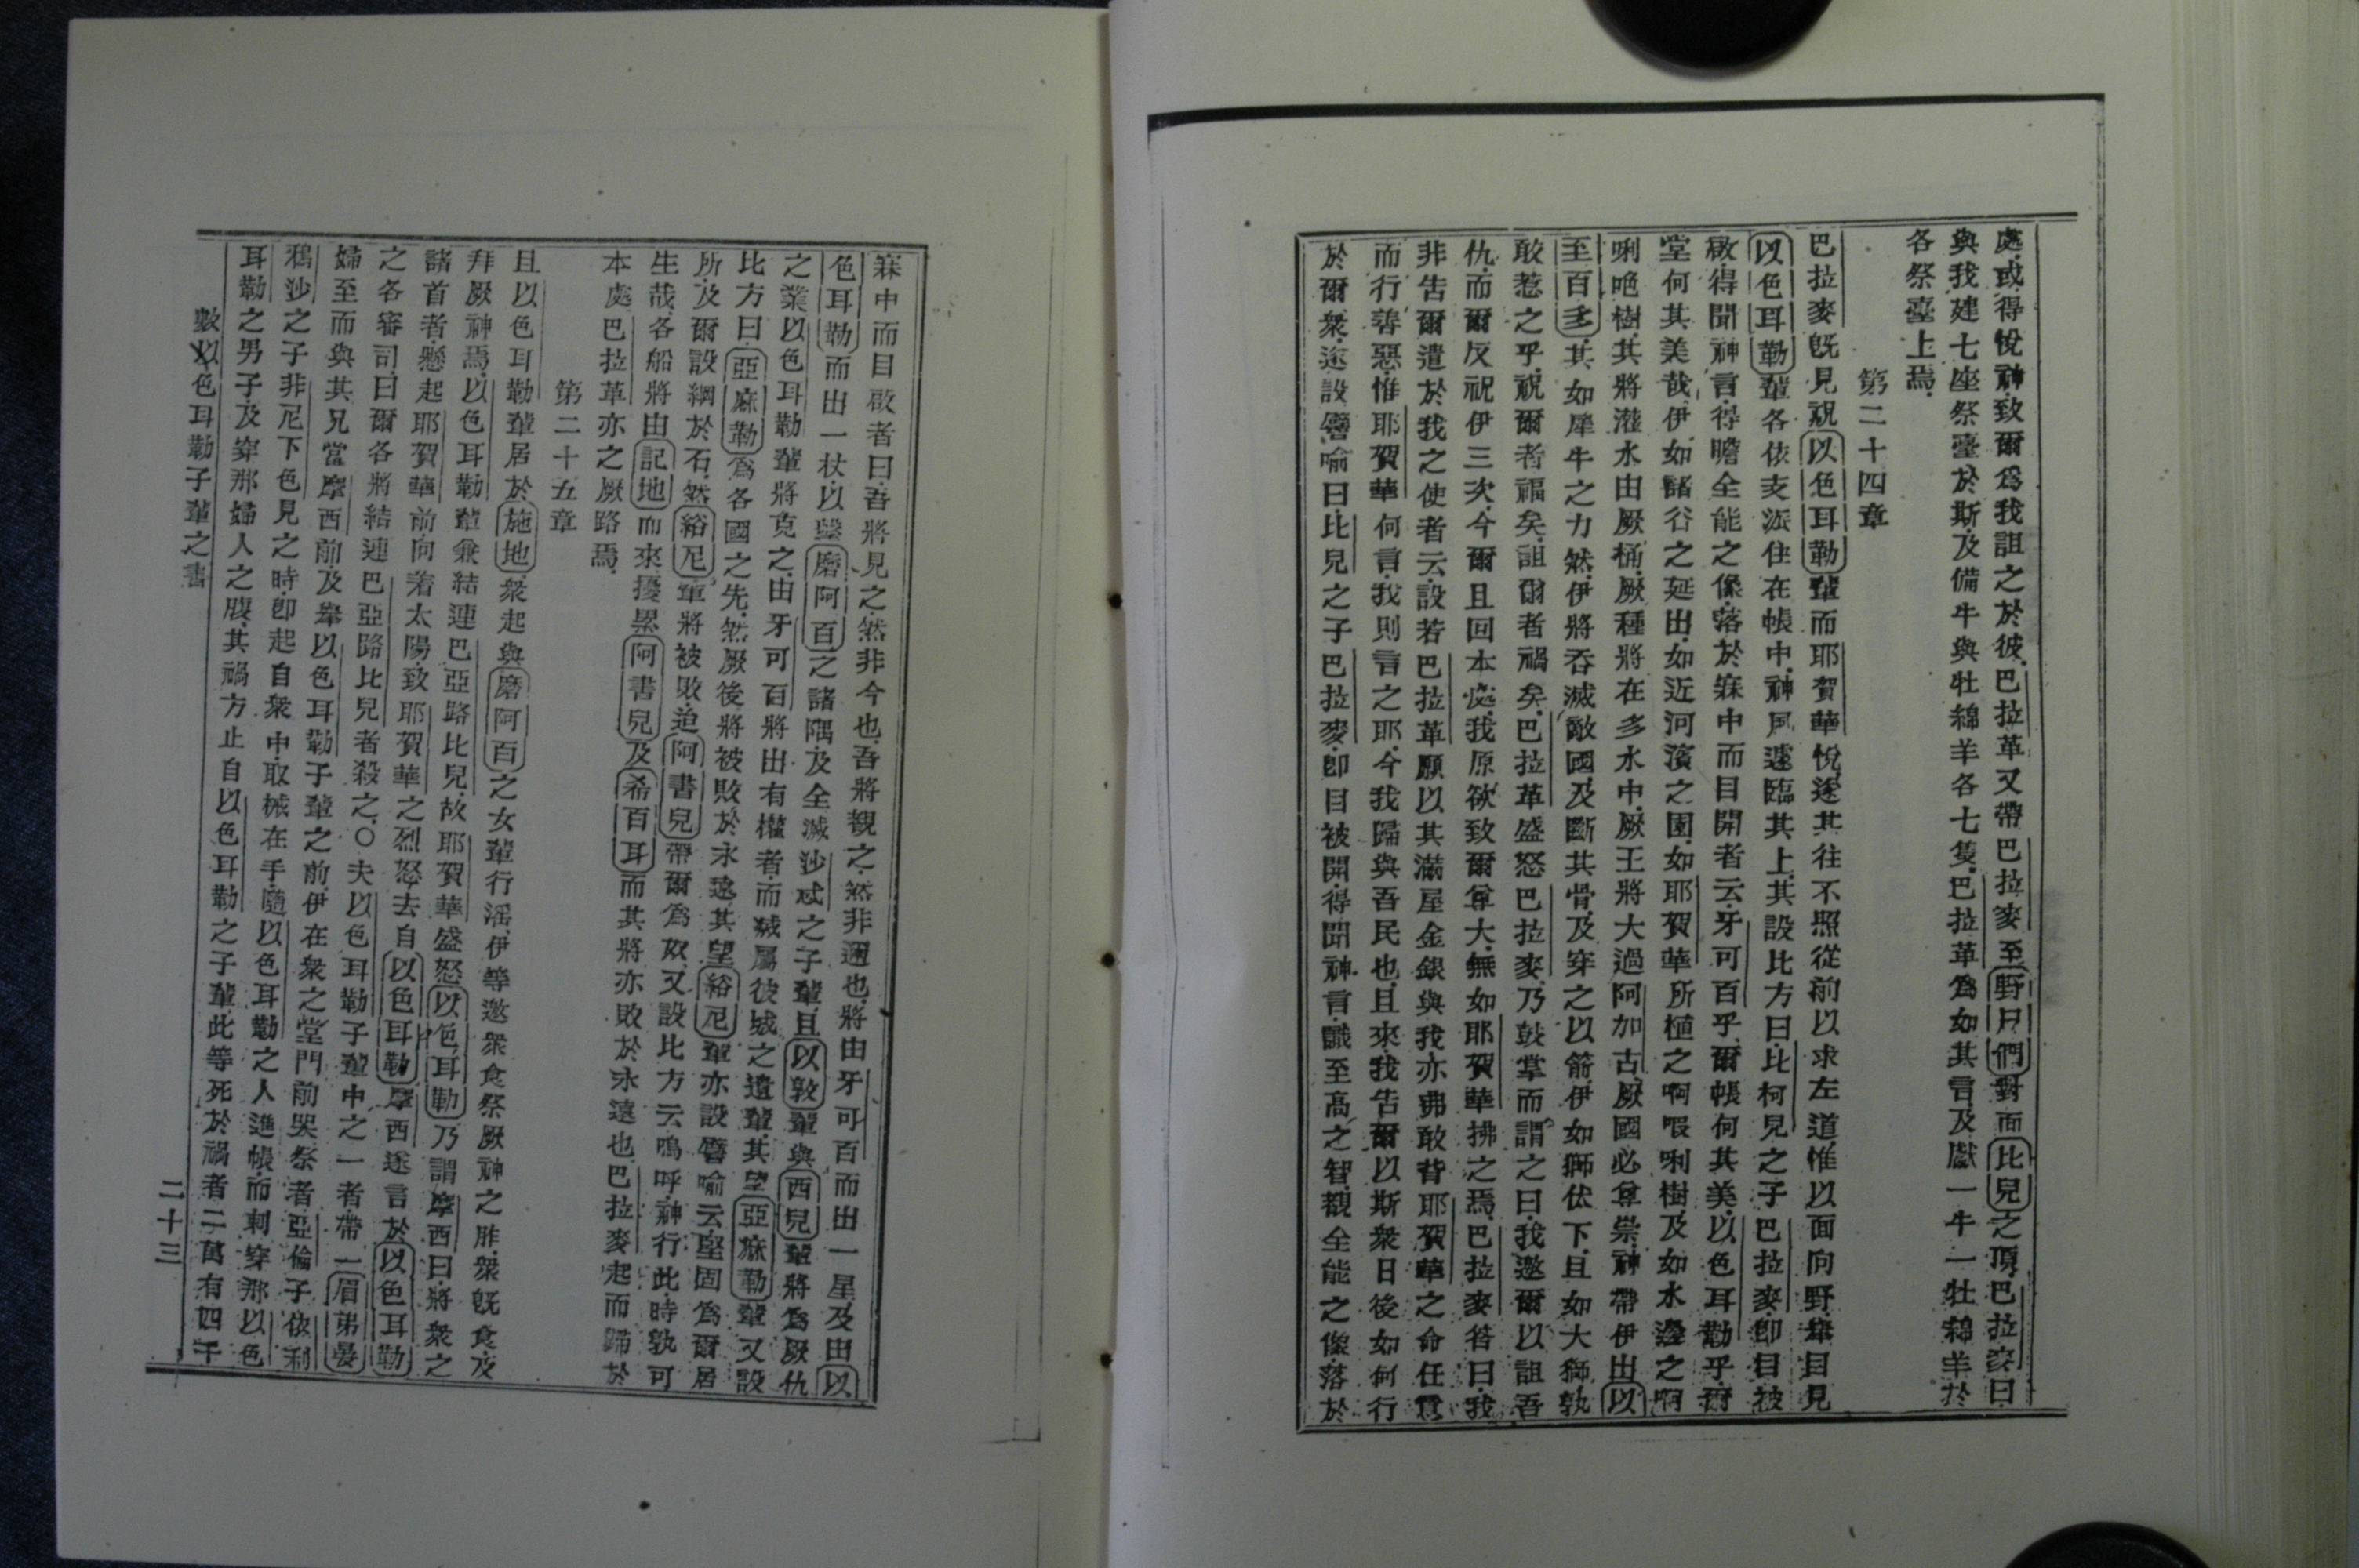 處.或得悅神.致爾爲我詛之於彼.巴拉革又帶巴拉麥至野只們對面比兒之頂.巴拉麥曰
與我建七座祭臺於斯.及備牛與牡綿羊各七隻.巴拉革爲如其言.及獻一牛一牡綿羊於
各祭臺上焉.
第二十四章
巴拉麥旣見祝以色耳勒輩而耶賀華悅.遂其往不照從前以求左道.惟以面向野.舉目見
以色耳勒輩各依支派住在帳中.神風遽臨其上.其設比方曰.比柯兒之子巴拉麥.卽目被
啟.得聞神言.得瞻全能之像.落於寐中而目開者云.牙可百乎.爾帳何其美.以色耳勒乎.爾
堂何其美哉.伊如諸谷之延出.如近河濱之園.如耶賀華所植之啊㗇唎樹.及如水邊之啊
唎咃樹.其將灌水由厥桶.厥種將在多水中.厥王將大過阿加古.厥國必尊崇.神帶伊出以
至百多.其如犀牛之力然.伊將吞滅敵國.及斷其骨.及穿之以箭.伊如獅伏下.且如大獅.孰
敢惹之乎.祝爾者福矣.詛爾者禍矣.巴拉革盛怒巴拉麥.乃鼓掌而謂之曰.我邀爾以詛吾
仇.而爾反祝伊三次.今爾且回本處.我原欲致爾尊大.無如耶賀華拂之焉.巴拉麥答曰.我
非告爾遣於我之使者云.設若巴拉革願以其滿屋金銀與我.我亦弗敢背耶賀華之命任意
而行善惡.惟耶賀華何言.我則言之耶.今我歸與吾民也.且來.我告爾以斯衆日後如何行
於爾衆.遂設譬喻曰.比兒之子巴拉麥.卽目被開.得聞神言.識至高之智.觀全能之像.落於
寐中而目啟者曰.吾將見之.然非今也.吾將觀之.然非邇也.將由牙可百而出一星.及由以
色耳勒而出一杖.以擊磨阿百之諸隅.及全滅沙忒之子輩.且以敦輩與西兒輩將爲厥仇
之業.以色耳勒輩將克之.由牙可百將出有權者.而滅屬彼城之遺輩.其望亞麻勒輩.又設
比方曰.亞麻勒爲各國之先.然厥後將被敗於永遠.其望綌尼輩.亦設譬喻云.堅固爲爾居
所.及爾設綱於石.然綌尼輩將被敗.迨阿書兒帶爾爲奴.又設比方云.嗚呼.神行此.時孰可
生哉.各船將由記地而來.擾累阿書兒及希百耳.而其將亦敗於永遠也.巴拉麥起而歸於
本處.巴拉革亦之厥路焉.
第二十五章
且以色耳勒輩居於施地.衆起與磨阿百之女輩行淫.伊等邀衆食祭厥神之胙.衆旣食.及
拜厥神焉.以色耳勒輩兼結連巴亞路比兒.故耶賀華盛怒以色耳勒.乃謂摩西曰.將衆之
諸首者.懸起耶賀華前.向着太陽.致耶賀華之烈怒去自以色耳勒.摩西遂言於以色耳勒
之各審司曰.爾各將結連巴亞路比兒者殺之.○夫以色耳勒子輩中之一者.帶一眉弟晏
婦至而與其兄當摩西前.及舉以色耳勒子輩之前.伊在衆之堂門前哭祭者.亞倫子依利
鴉沙之子非尼下色見之時.卽起自衆中.取械在手.隨以色耳勒之人進帳.而刺穿那以色
耳勒之男子.及穿那婦人之腹.其禍方止自以色耳勒之子輩.此等死於禍者二萬有四千
數以色耳勒子輩之書
二十三